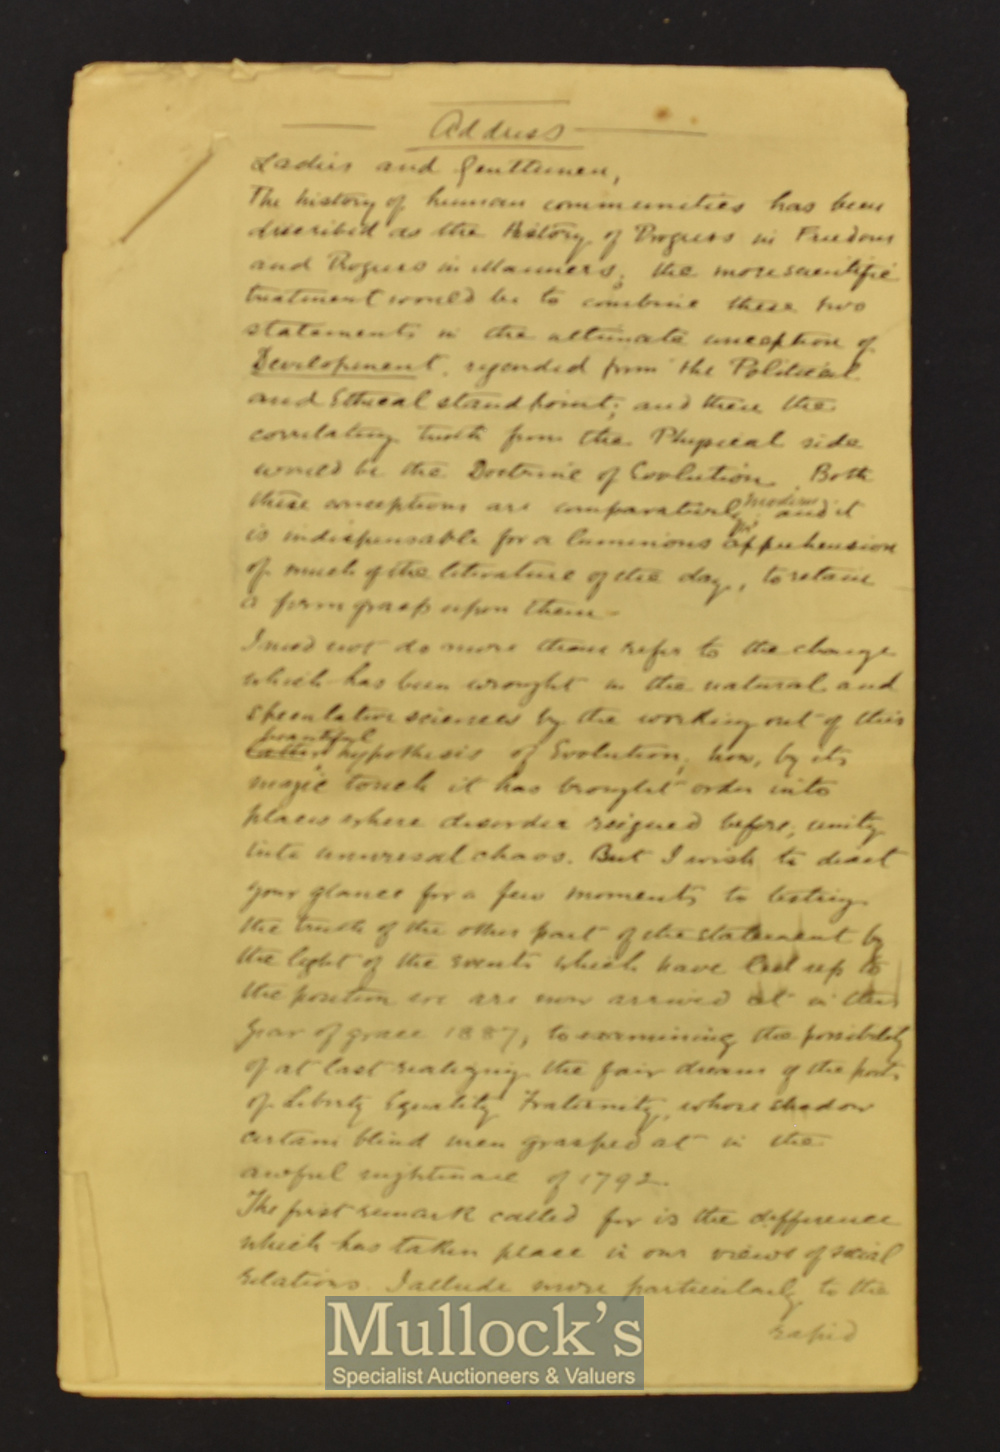 Address
Ladies and Gentlemen,
The history of human communities has been
described as the History of Progress in Freedom
and Progress in Manners; the more scientific
treatment would be to combine these two
statements in the ultimate conception of
Development, regarded from the Political
and Ethical standpoint; and then the
correlating truth from the Physical side
would be the Doctrine of Evolution. Both
these conceptions are comparatively modern; and it
is indispensable for a luminous apprehension
of much of the literature of the day, to retain
a firm grasp upon them—
I need not do more than refer to the change
which has been wrought in the natural and
speculative sciences by the working out of this
beautiful
latter hypothesis of Evolution; how, by its
magic touch it has brought order into
places where disorder reigned before, unity
into universal chaos. But I wish to direct
your glance for a few moments to testing
the truth of the other part of the statement by
the light of the events which have led up to
the position we are now arrived at in this
year of grace 1887, to examining the possibility
of at last realizing the fair dream of the poets
of Liberty Equality Fraternity, whose shadow
certain blind men grasped at in the
awful nightmare of 1792.
The first remark called for is the difference
which has taken place in our views of social
relations. I allude more particularly to the
rapid
Mullock's
Specialist Auctioneers & Valuers